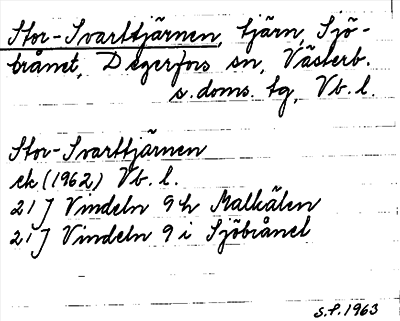 Stor-Svarttjärnen, tjärn, Sjö-
brånet, Degerfors sn, Västerb.
s. doms. tg, Vb. l.
Stor-Svarttjärnen
ek (1962) Vb. l.
21 J Vindeln 9 h Malkälen
21 J Vindeln 9 i Sjöbrånet
S.P. 1963